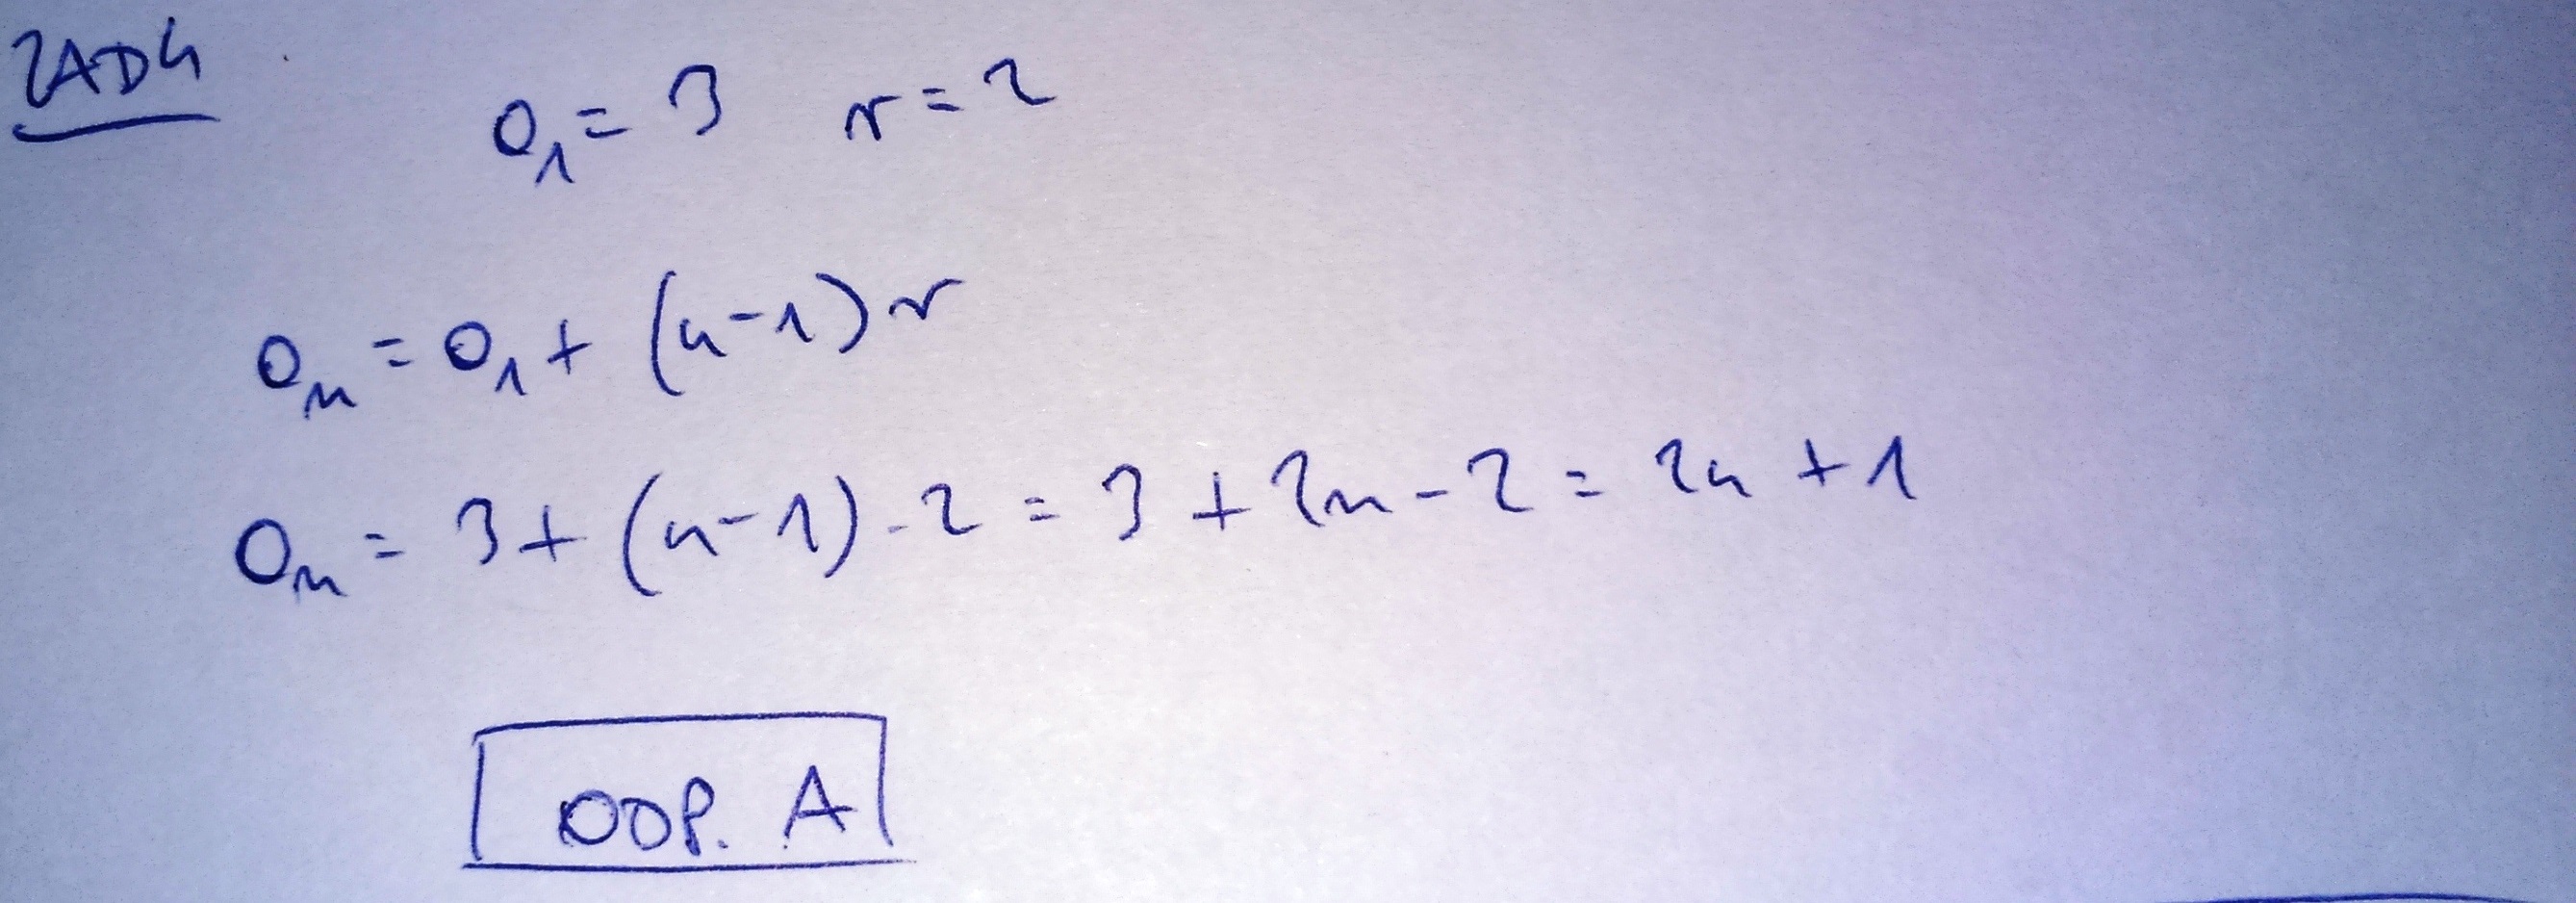 ZAD4
a₁ = 3 r = 2
aₙ = a₁ + (n-1)r
aₙ = 3 + (n-1)·2 = 3 + 2n - 2 = 2n + 1
ODP. A